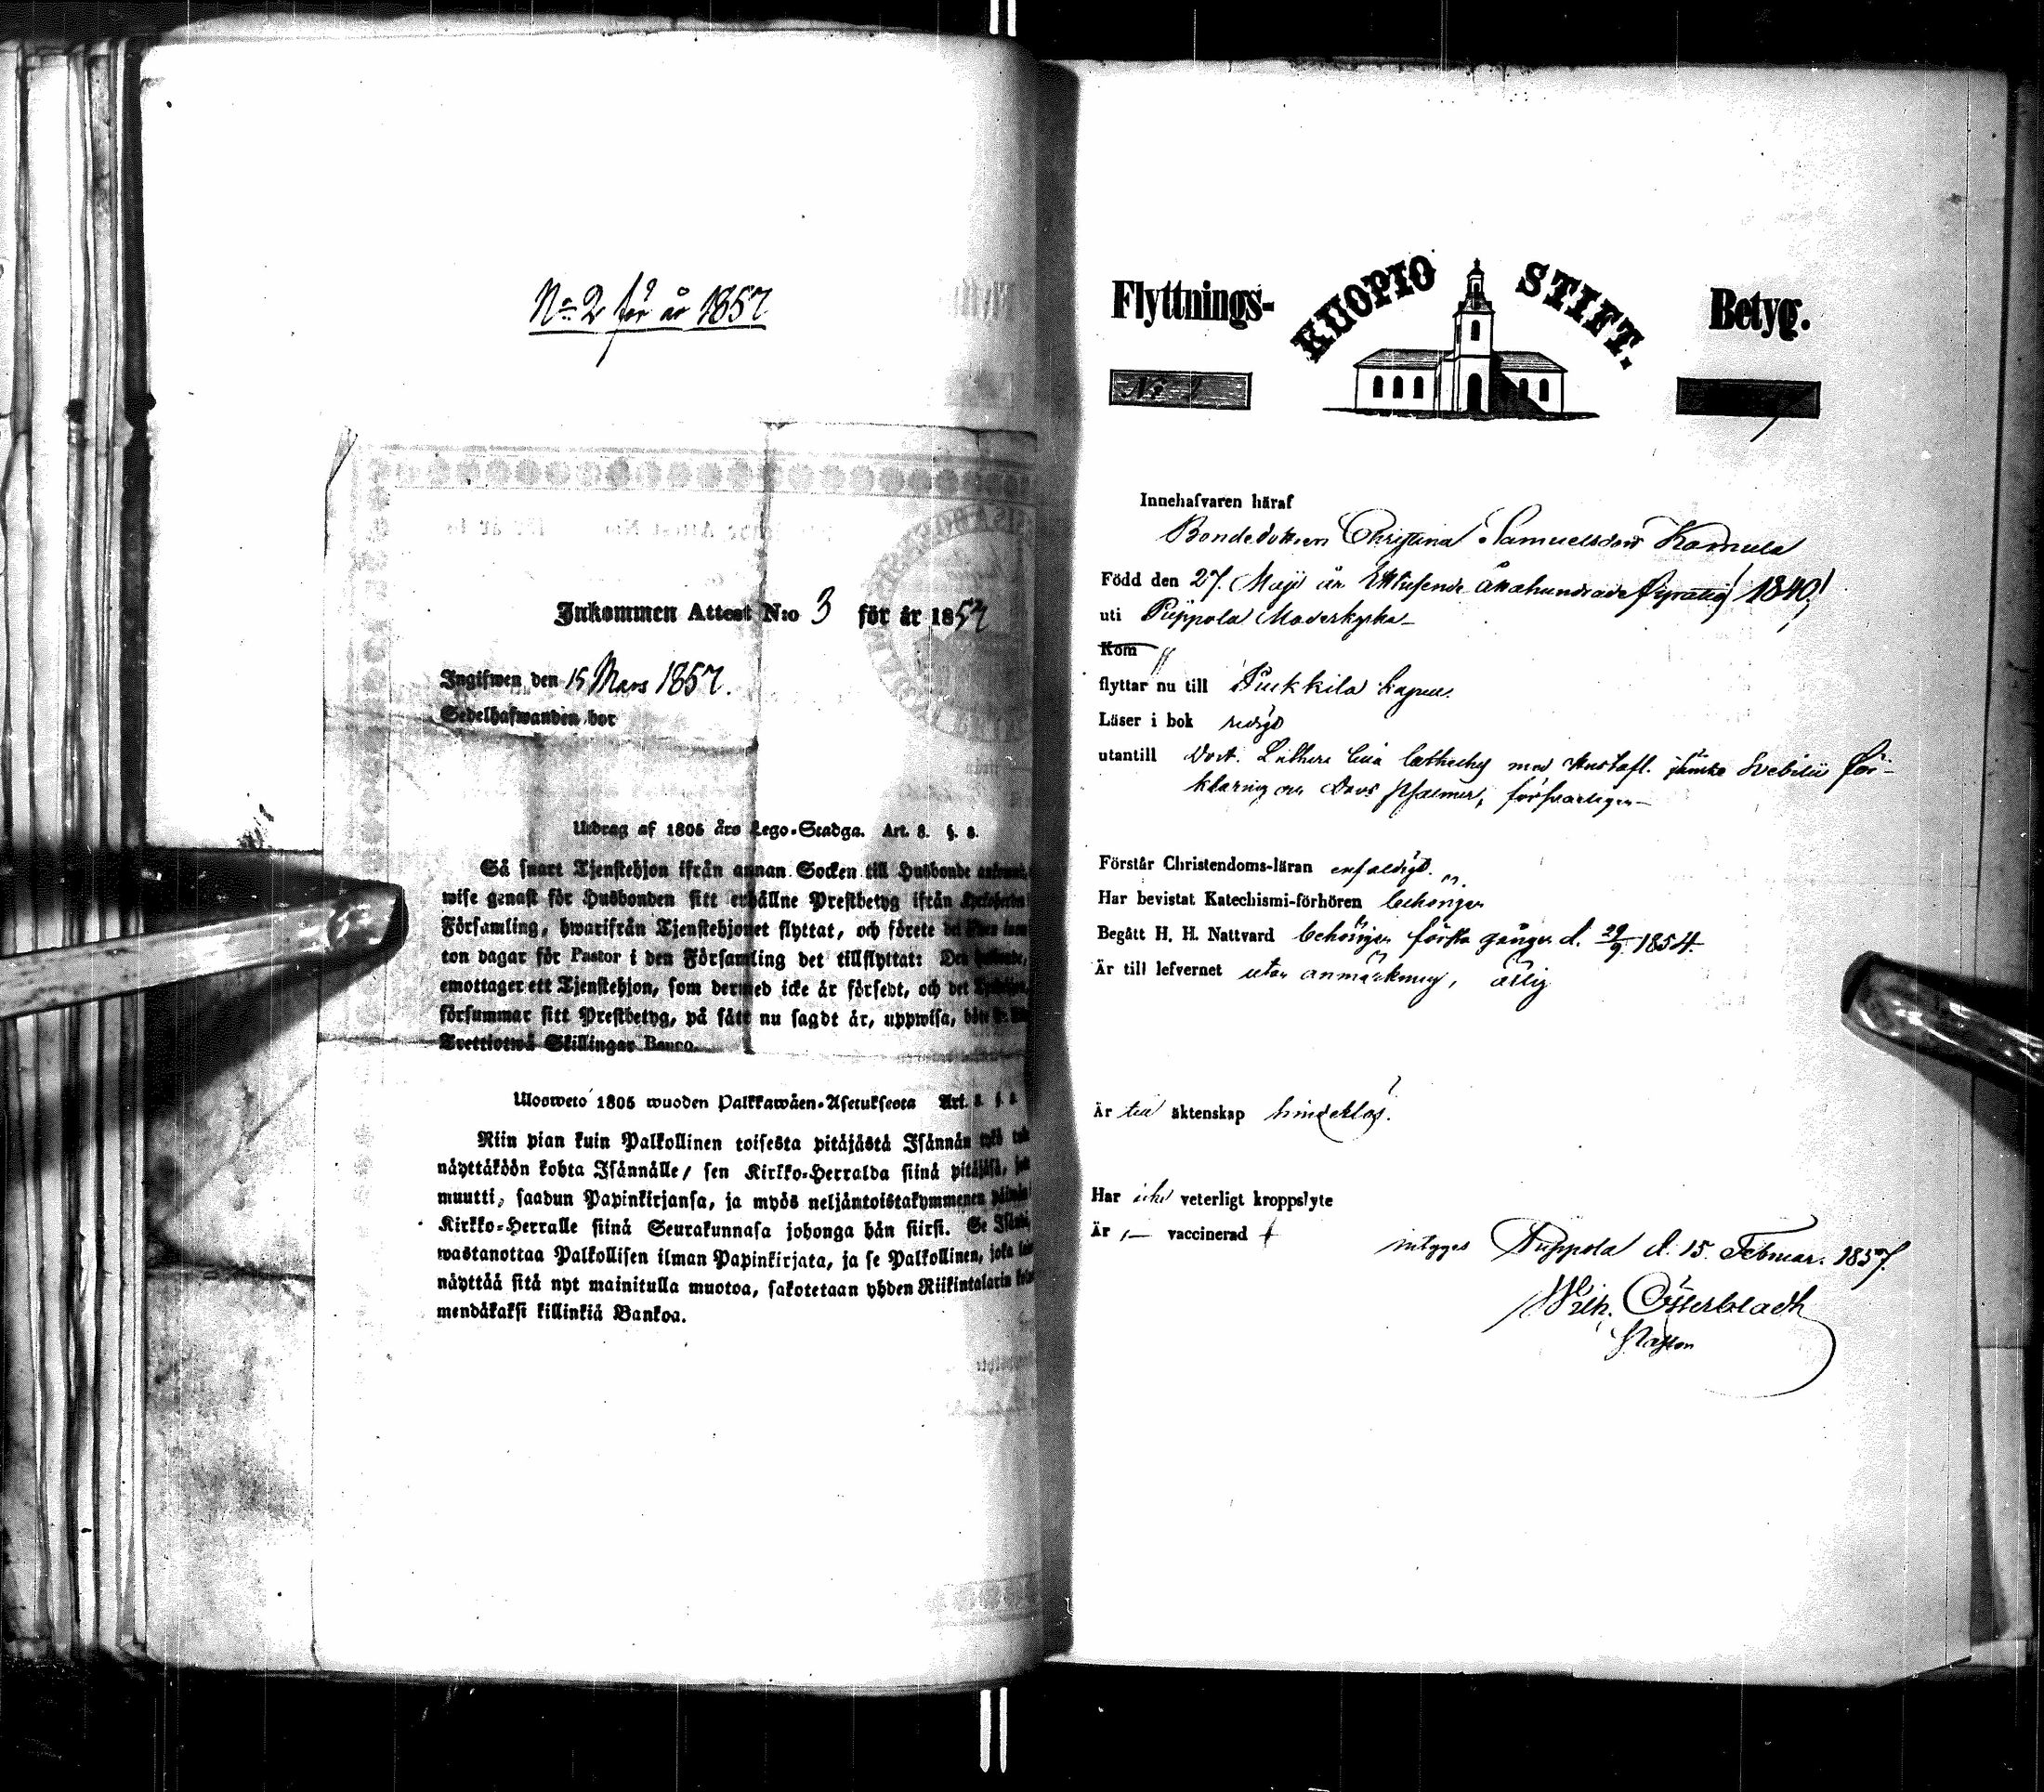 No 2 för år 1857
Inkommen Attest N:o 3 för år 1857
Ingifwen den 15 Mars 1857.
Sedelhafwanden bor
Utdrag af 1805 års Lego-Stadga. Art. 8. §. 8.
Så snart Tjenstehjon ifrån annan Socken till Husbonde
wise genast för Husbonden sitt erhållne Prestbetyg ifrån
Församling, hwarifrån Tjenstehjonet flyttat, och förete
ton dagar för Pastor i den Församling det tillflyttat: Den
emottager ett Tjenstehjon, som dermed icke är försedt, och det
försummar sitt Prestbetyg, på sätt nu sagdt är, uppwisa,
Trettiotwå Skillingar Banco.
Ulosweto 1805 wuoden Palkkawäen-Asetuksesta Art. 8. §. 8.
Niin pian kuin Palkollinen toisesta pitäjästä Isännän tykö
näyttäköön kohta Isännälle/ sen Kirkko-Herralda siinä pitäjäsä,
muutti, saadun Papinkirjansa, ja myös neljäntoistakymmenen
Kirkko-Herralle siinä Seurakunnasa johonga hän siirsi. Se
wastanottaa Palkollisen ilman Papinkirjata, ja se Palkollinen, joka
näyttää sitä nyt mainitulla muotoa, sakotetaan yhden Riikintalarin
mendäkaksi killinkiä Bankoa.
Flyttnings- KUOPIO STIFT. Betyg.
Innehafvaren häraf
Bondedottren Christina Samuelsdotr Kamula
Född den 27. Maji år Ettusende åttahundrade fyratio/ 1840/
uti Pippola Moderkyrka
Kom "
flyttar nu till Pulkkila
Läser i bok
utantill Doct. Luthers med Hustafl. jämte Svebilii för-
klaring och Davs psalmer, försvarligen
Förstår Christendoms-läran enfaldigt.
Har bevistat Katechismi-förhören behörigen
Begått H. H. Nattvard behörigen första gången d. 29/9 1854.
Är till lefvernet utan anmärkning, ärlig
Är till äktenskap hinderlös.
Har icke veterligt kroppslyte
Är vaccinerad
intygas Pippola d. 15 Februar. 1857.
Wilh. Österbladh
Pastor